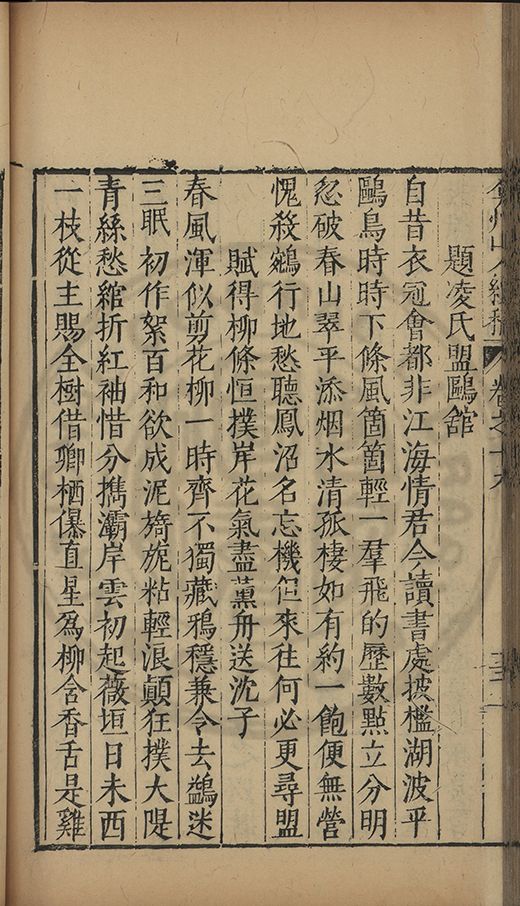 弇州山人續稿 卷之十六
題凌氏盟鷗舘
自昔衣冠會都非江海情君今讀書處披檻湖波平
鷗鳥時時下條風箇箇輕一羣飛的歷數點立分明
忽破春山翠平添烟水清孤棲如有約一飽便無營
愧殺鵷行地愁聽鳳沼名忘機但來往何必更尋盟
賦得柳條恒撲岸花氣盡薰舟送沈子
春風渾似剪花柳一時齊不獨藏鴉穩兼令去鷁迷
三眠初作絮百和欲成泥旖旎粘輕浪顛狂撲大隄
青絲愁綰折紅袖惜分擕灞岸雲初起薇垣日未西
一枝從主賜全樹借卿栖儤直星爲柳含香舌是雞